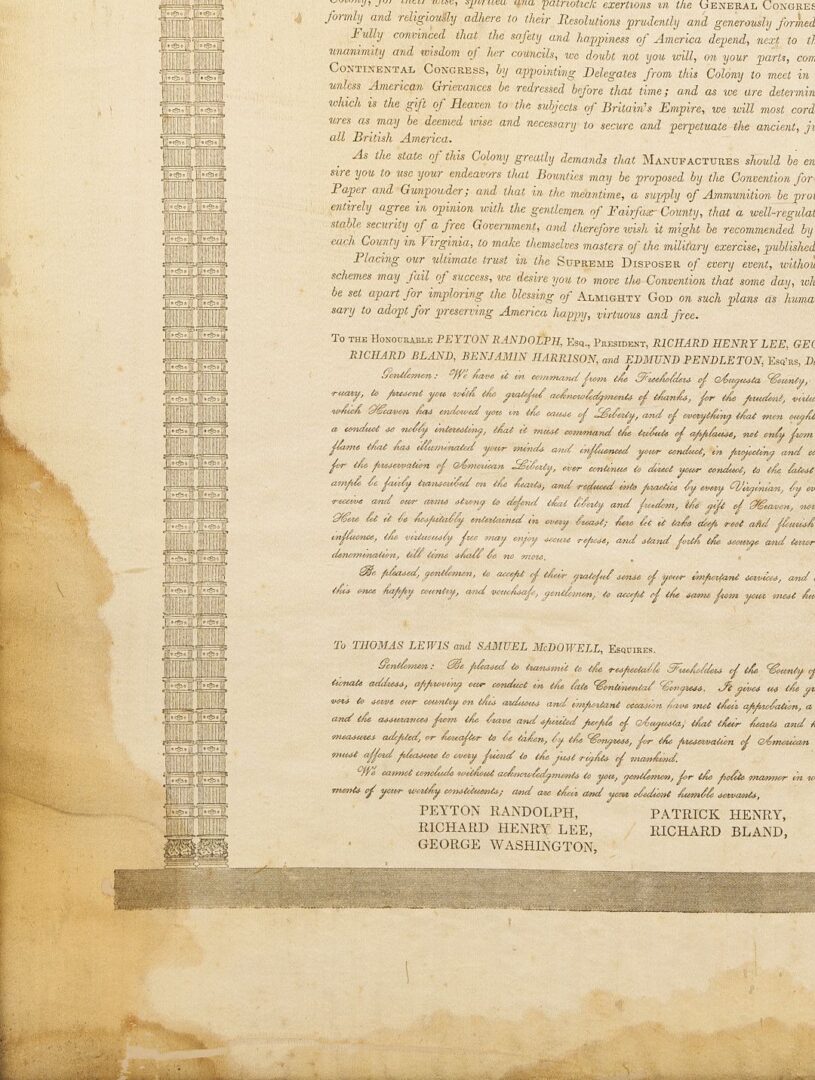 Colony, for their wise, spirited and patriotick exertions in the GENERAL CONGRES
formly and religiously adhere to their Resolutions prudently and generously formed
Fully convinced that the safety and happiness of America depend, next to th
unanimity and wisdom of her councils, we doubt not you will, on your parts, com
CONTINENTAL CONGRESS, by appointing Delegates from this Colony to meet in
unless American Grievances be redressed before that time; and as we are determin
which is the gift of Heaven to the subjects of Britain's Empire, we will most cord
ures as may be deemed wise and necessary to secure and perpetuate the ancient, j
all British America.
As the state of this Colony greatly demands that MANUFACTURES should be en
sire you to use your endeavors that Bounties may be proposed by the Convention for
Paper and Gunpowder; and that in the meantime, a supply of Ammunition be pro
entirely agree in opinion with the gentlemen of Fairfax County, that a well-regulat
stable security of a free Government, and therefore wish it might be recommended by
each County in Virginia, to make themselves masters of the military exercise, published
Placing our ultimate trust in the SUPREME DISPOSER of every event, withou
schemes may fail of success, we desire you to move the Convention that some day, wh
be set apart for imploring the blessing of ALMIGHTY GOD on such plans as huma
sary to adopt for preserving America happy, virtuous and free.
TO THE HONOURABLE PEYTON RANDOLPH, ESQ., PRESIDENT, RICHARD HENRY LEE, GEO
RICHARD BLAND, BENJAMIN HARRISON, and EDMUND PENDLETON, ESQ'RS, D
Gentlemen: We have it in command from the Freeholders of Augusta County,
ruary, to present you with the grateful acknowledgments of thanks, for the prudent, virtu
which Heaven has endowed you in the cause of Liberty, and of everything that men ought
a conduct so nobly interesting, that it must command the tribute of applause, not only from
flame that has illuminated your minds and influenced your conduct, in projecting and c
for the preservation of American Liberty, ever continue to direct your conduct, to the latest
ample be fairly transcribed on the hearts, and reduced into practice by every Virginian, by ev
receive and our arms strong to defend that liberty and freedom, the gift of Heaven, no
Here let it be hospitably entertained in every breast; here let it take deep root and flourish
influence, the virtuously free may enjoy secure repose, and stand forth the scourge and terror
denomination, till time shall be no more.
Be pleased, gentlemen, to accept of their grateful sense of your important services, and
this once happy country, and vouchsafe, gentlemen, to accept of the same from your most hu
To THOMAS LEWIS and SAMUEL McDOWELL, ESQUIRES.
Gentlemen: Be pleased to transmit to the respectable Freeholders of the County of
tionate address, approving our conduct in the late Continental Congress. It gives us the g
vors to serve our country on this arduous and important occasion have met their approbation, a
and the assurances from the brave and spirited people of Augusta, that their hearts and h
measures adopted, or hereafter to be taken, by the Congress, for the preservation of American
must afford pleasure to every friend to the just rights of mankind.
We cannot conclude without acknowledgments to you, gentlemen, for the polite manner in w
ments of your worthy constituents; and are their and your obedient humble servants,
PEYTON RANDOLPH, PATRICK HENRY,
RICHARD HENRY LEE, RICHARD BLAND,
GEORGE WASHINGTON,